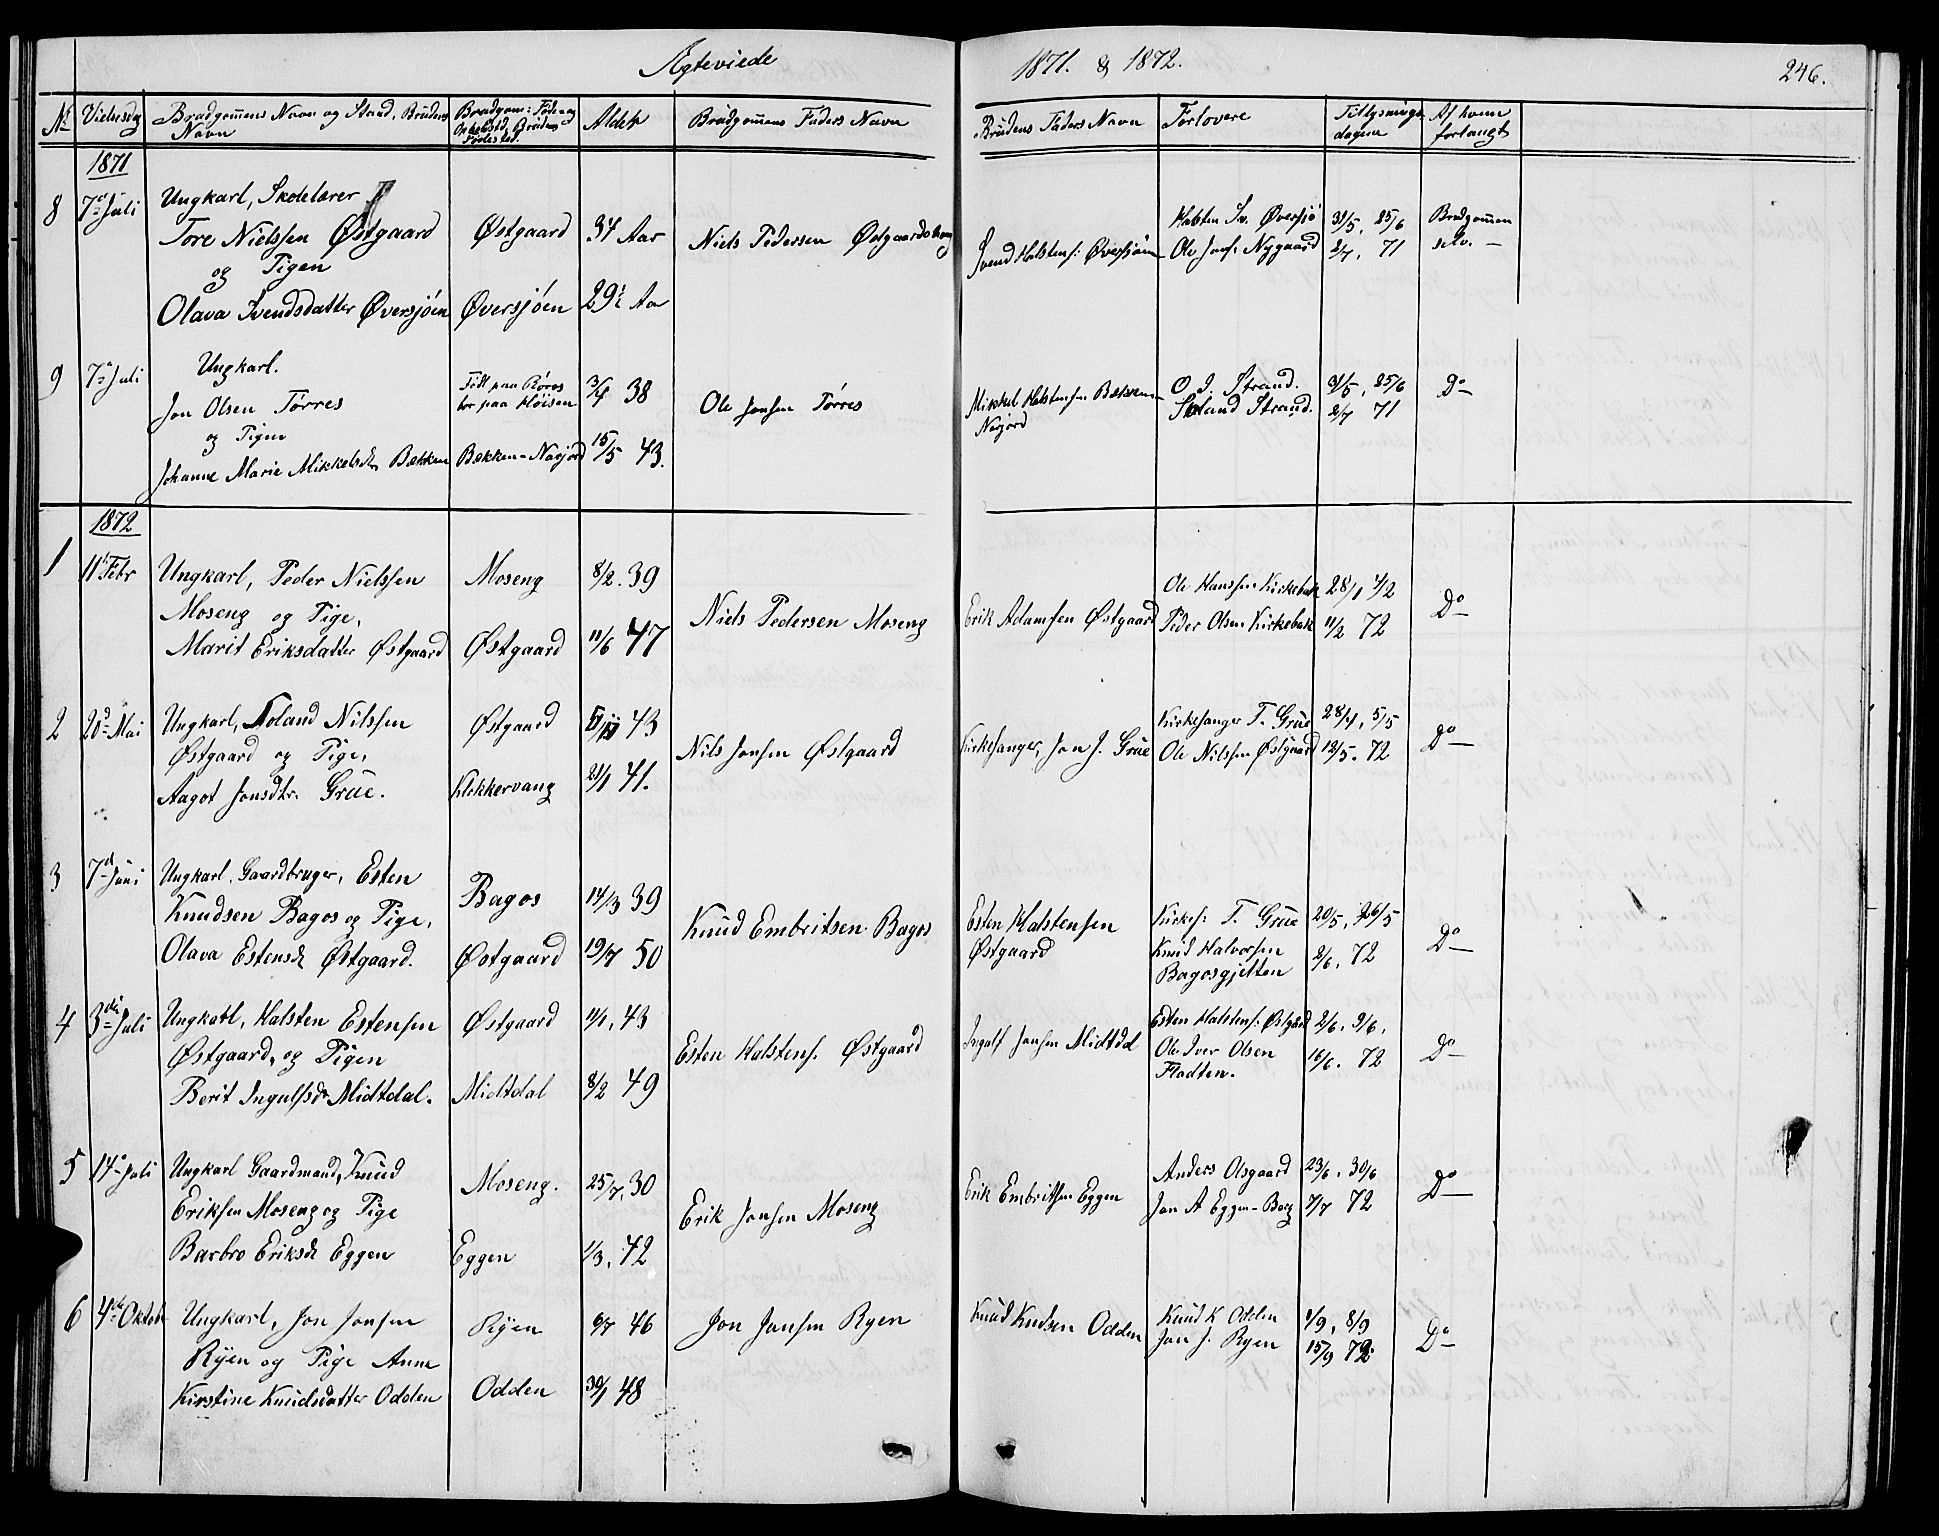 Ægteviede 1871. & 1872. 246.
No Vielsesdag Brudgommens Navn og Stand, Brudens Navn
Brudgom: Føde- og Opholdstd, Brudens Fødested.
Alder
Brudgommens Faders Navn
Brudens Faders Navn
Forlovere
Tillysnings dagene
Af hvem forlangt
1871
8 7de Juli Ungkarl, Skolelærer
Tore Nielssen Østgaard Østgaard 34 Aar
og Pigen
Olava Svendsdatter Øversjøen Øversjøen 29½ Aar
Niels Pedersen
Svend Halstens: Øversjøen
Halsten Sv. Øversjø 31/5, 25/6 Brudgommen
Ole Jons: Nygaard 2/7, 71 selv. —
9 7de Juli Ungkarl.
Jon Olsen Tørres
og Pigen
Johanne Marie Mikkelsdtr Bækken
Født paa Røros
bor paa Høisen 3/4 38
Bækken-Narjord 15/5 43.
Ole Jonsen Tørres
Mikkel Halstensen Bækken
Narjord
O. J. Strand. 31/5, 25/6 Do
Strand. 2/7 71
1872
1 11te Febr Ungkarl, Peder Nielssen Moseng 8/2. 39
Moseng og Pige,
Marit Eriksdatter Østgaard Østgaard 11/6 47
Niels Pedersen Moseng
Erik Adamsen Østgaard
Ole Hanssen Kirkebak 28/1 4/2 Do
Peder Olsen Kirkebak 11/2 72
2 20de Mai Ungkarl, Nilssen Østgaard 43
Østgaard og Pige,
Aagot Jonsdtr. Grüe. Klokkervang 21/1 41.
Nils Jonsen Østgaard
Kirkesanger, Jon J. Grüe
Kirkesanger T. Grüe 28/4, 5/5 Do
Ole Nilssen Østgaard 12/5. 72
3 7de Juni Ungkarl, Gaardbruger, Esten
Knudsen Bagos og Pige, Bagos 14/3 39
Olava Estensd Østgaard. Østgaard 19/7 50
Knud Embritsen Bagos
Esten Halstensen
Østgaard
Kirkes: T. Grüe 20/5, 26/5
Knud Halvorsen 2/6, 72 Do
Bagosgjelten
4 3die Juli Ungkarl, Halsten Estensen Østgaard 11/1, 43
Østgaard, og Pigen
Berit Ingulfsdr Midtdal. Midtdal 8/2 49
Esten Halstens. Østgaard
Ingulf Jonsen Midtdal
Esten Halstens: Østgård 2/6, 9/6,
Ole Iver Olsen 16/6. 72 Do
Fladten.
5 14de Juli Ungkarl Gaardmand, Knud
Eriksen Moseng og Pige Moseng. 25/7, 30
Barbro Eriksd Eggen Eggen 1/3, 42
Erik Jonsen Moseng
Erik Embritsen Eggen
Anders Olsgaard 23/6, 30/6 Do
Jon A Eggen-Berg 7/7 72
6 4de Oktob Ungkarl, Jon Jonsen Ryen 6/7 46
Ryen og Pige Anne
Kirstine Knudsdatter Odden Odden 30/1 48
Jon Jonsen Ryen
Knud Knudsen Odden
Knud K Odden 1/9, 8/9 Do
Jon J. Ryen 15/9 72